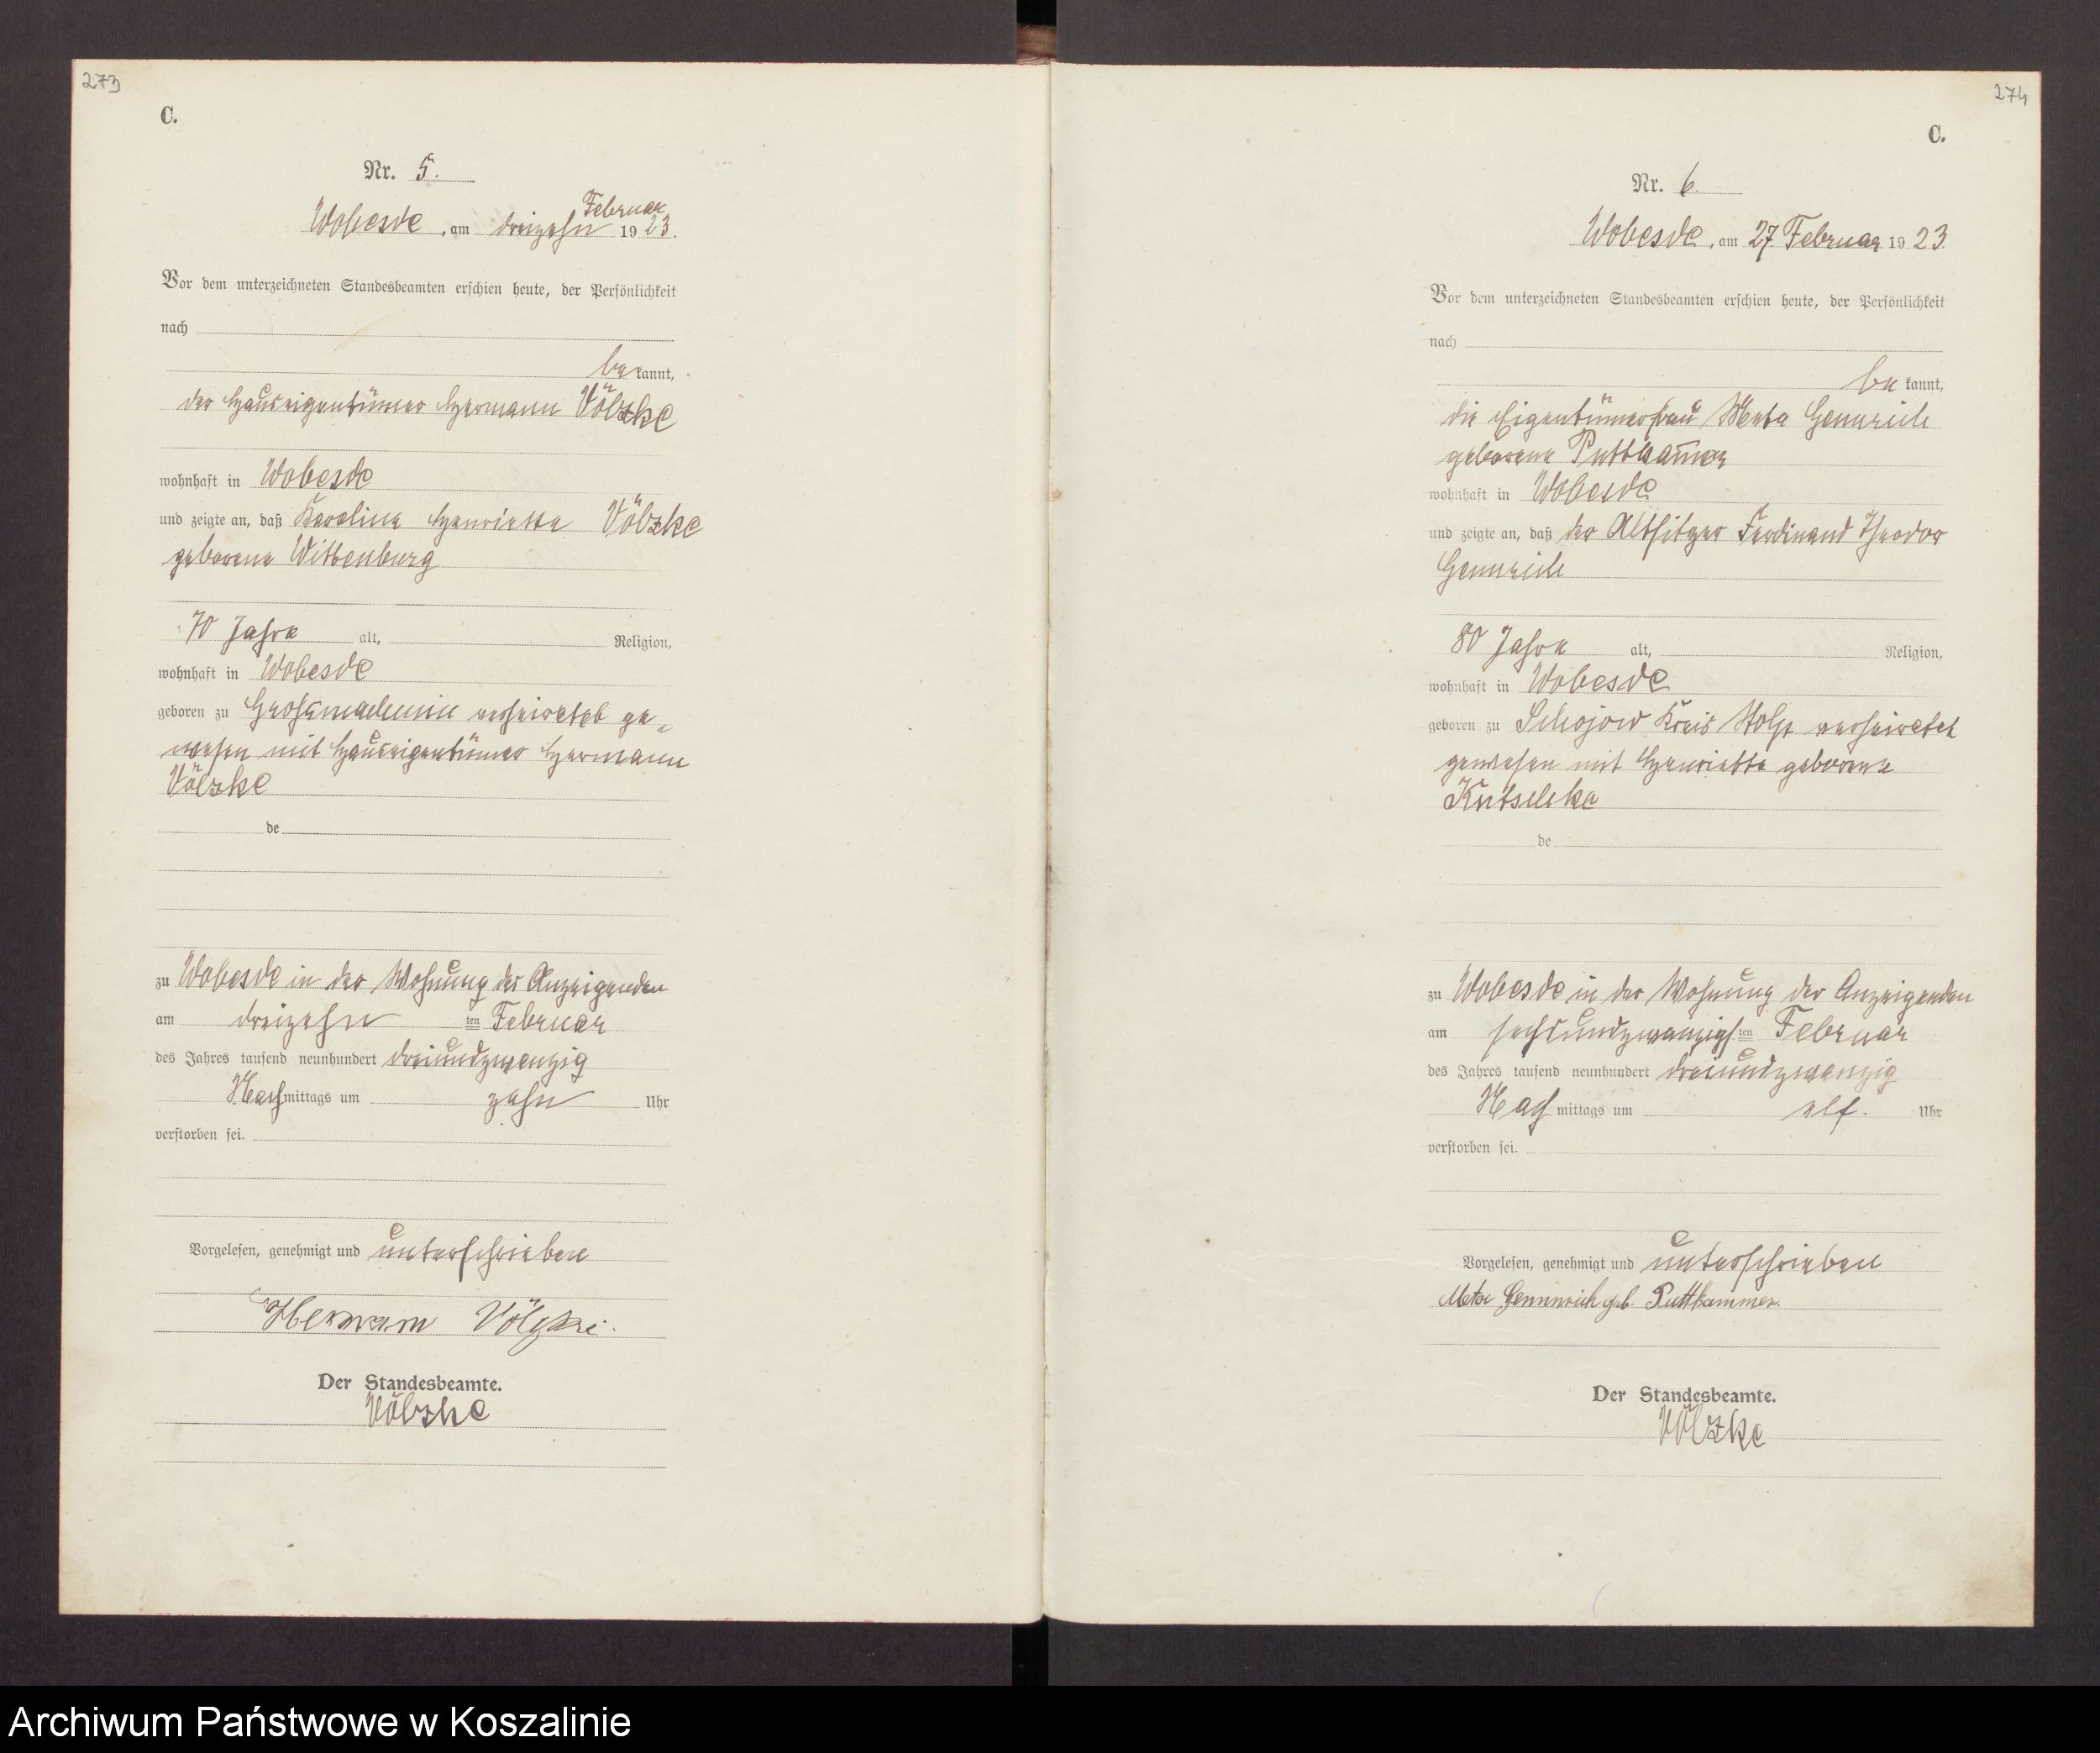 273
C.
Nr. 5.
Februar
Wobesde, am dreizehn 1923.
Vor dem unterzeichneten Standesbeamten erschien heute, der Persönlichkeit
nach
be kannt,
der Hauseigentümer Hermann Völzke
wohnhaft in Wobesde
und zeigte an, daß Karoline Henriette Völzke
geborene Wittenburg
70 Jahre alt, Religion,
wohnhaft in Wobesde
geboren zu verheiratet ge-
wesen mit Hauseigentümer Hermann
Völzke
de
zu Wobesde in der Wohnung des Anzeigenden
am dreizehn ten Februar
des Jahres tausend neunhundert dreiundzwanzig
Nachmittags um zehn Uhr
verstorben sei.
Vorgelesen, genehmigt und unterschrieben
Hermann Völzke.
Der Standesbeamte.
Völzke
274
C.
Nr. 6.
Wobesde, am 27. Februar 1923.
Vor dem unterzeichneten Standesbeamten erschien heute, der Persönlichkeit
nach
be kannt,
die Eigentümerfrau Meta Gennrich
geborene Puttkam̅er
wohnhaft in Wobesde
und zeigte an, daß der Altsitzer Ferdinand Theodor
Gennrich
80 Jahre alt, Religion,
wohnhaft in Wobesde
geboren zu Schojow Kreis Stolp verheiratet
gewesen mit Henriette geborene
Kutschke
de
zu Wobesde in der Wohnung der Anzeigenden
am sechsundzwanzigsten Februar
des Jahres tausend neunhundert dreiundzwanzig
Nach mittags um elf. Uhr
verstorben sei.
Vorgelesen, genehmigt und unterschrieben
Meta Gennrich geb. Puttkammer.
Der Standesbeamte.
Völzke
Archiwum Państwowe w Koszalinie